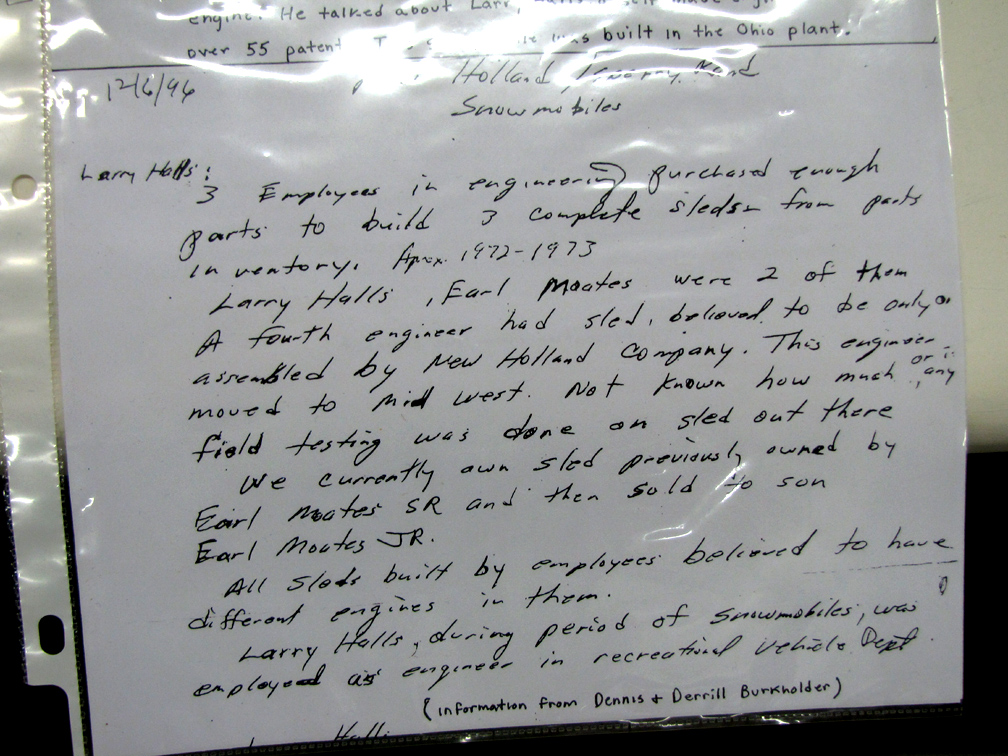 engine. He talked about Larr
over 55 patent was built in the Ohio plant.
12/6/96 Holland,
Snowmobiles
Larry Halls:
3 Employees in engineering purchased enough
parts to build 3 complete sleds from parts
inventory. Aprox. 1972-1973
Larry Halls, Earl Moates were 2 of them
A fourth engineer had sled, believed to be only
assembled by New Holland Company. This engineer
moved to Mid West. Not known how much, or if any
field testing was done on sled out there
We currently own sled previously owned by
Earl Moates SR and then sold to son
Earl Moates JR.
All sleds built by employees believed to have
different engines in them.
Larry Halls, during period of snowmobiles, was
employed as engineer in recreational vehicle Dept.
(information from Dennis + Derrill Burkholder)
Halls